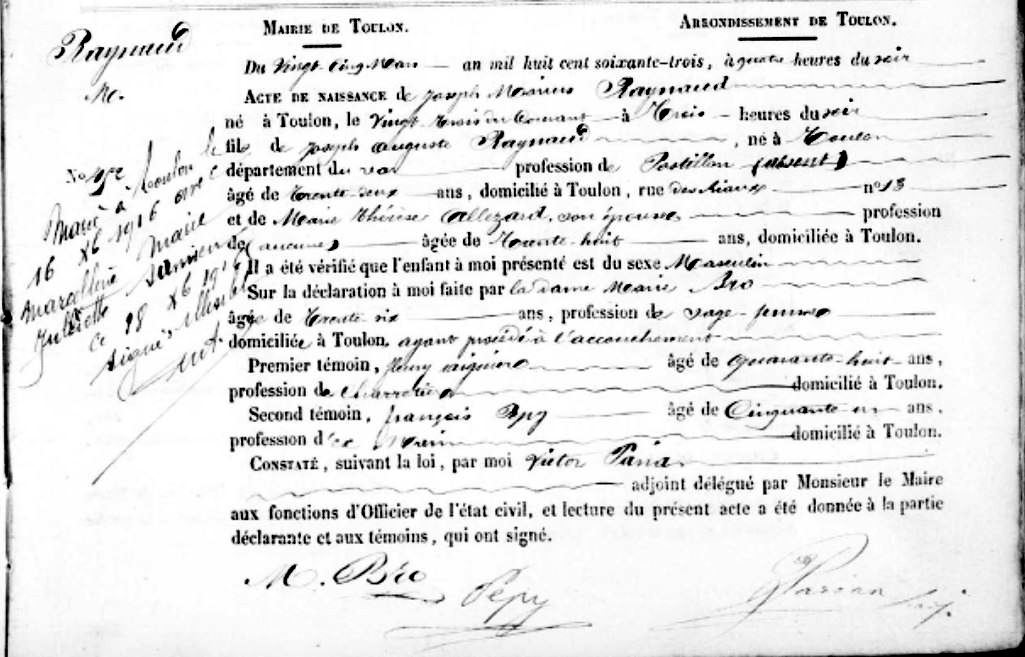 Raynaud
M.
MAIRIE DE TOULON. ARRONDISSEMENT DE TOULON.
Du Vingt Cinq Mars an mil huit cent soixante-trois, à quatre heures du soir
ACTE DE NAISSANCE de Joseph Marius Raynaud
né à Toulon, le Vingt trois du Courant à trois heures du soir
fils de Joseph Auguste Raynaud, né à Toulon
département du var profession de Postillon (absent)
âgé de trente deux ans, domicilié à Toulon, rue des Riaux n° 13
et de Marie Thérèse Allezard, son épouse profession
de (aucune) âgée de trente-huit ans, domiciliée à Toulon.
Il a été vérifié que l'enfant à moi présenté est du sexe Masculin
Sur la déclaration à moi faite par la dame Marie Bro
âgée de trente six ans, profession de sage-femme
domiciliée à Toulon, ayant procédé à l'accouchement
Premier témoin, fleury âgé de quarante-huit ans,
profession de charretier domicilié à Toulon.
Second témoin, françois Pepy âgé de Cinquante un ans.
profession d'ex Marin domicilié à Toulon.
CONSTATÉ, suivant la loi, par moi Victor
adjoint délégué par Monsieur le Maire
aux fonctions d'Officier de l'état civil, et lecture du présent acte a été donnée à la partie
déclarante et aux témoins, qui ont signé.
M. Bro
Pepy
No
Marié à Toulon le
16 Xb 1916 avec
Marcelline Marie
Juliette
ce 18 Xb 1916